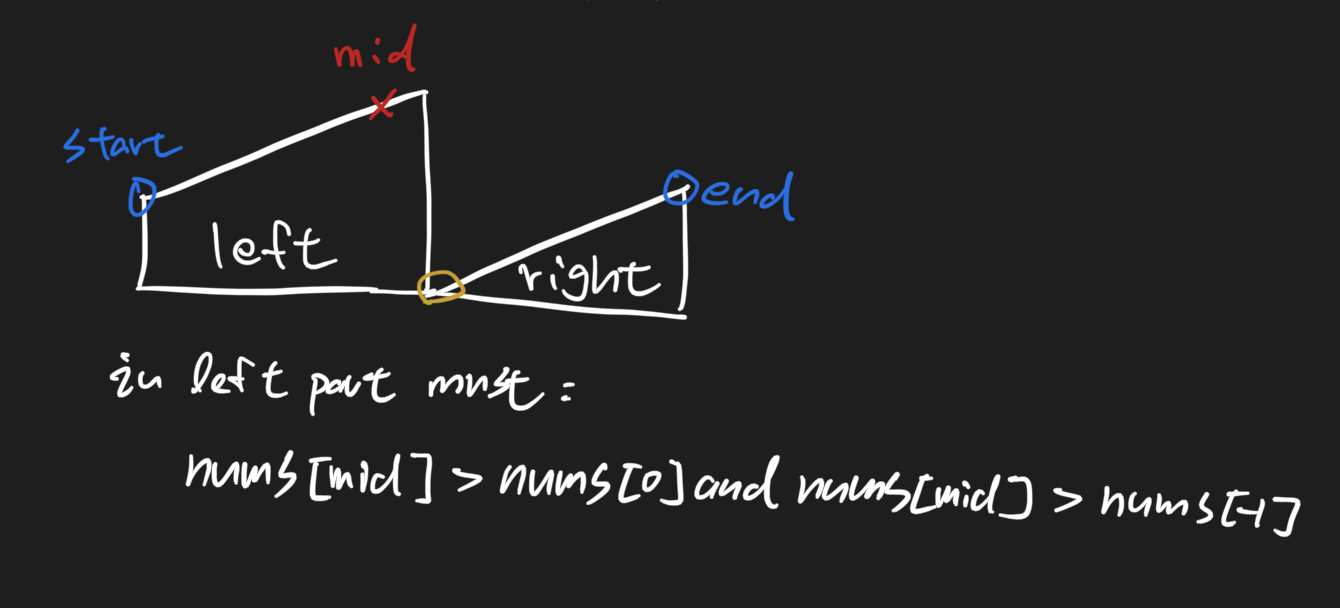 mid
start
end
left
right
in left part must:
nums[mid] > nums[0] and nums[mid] > nums[-1]